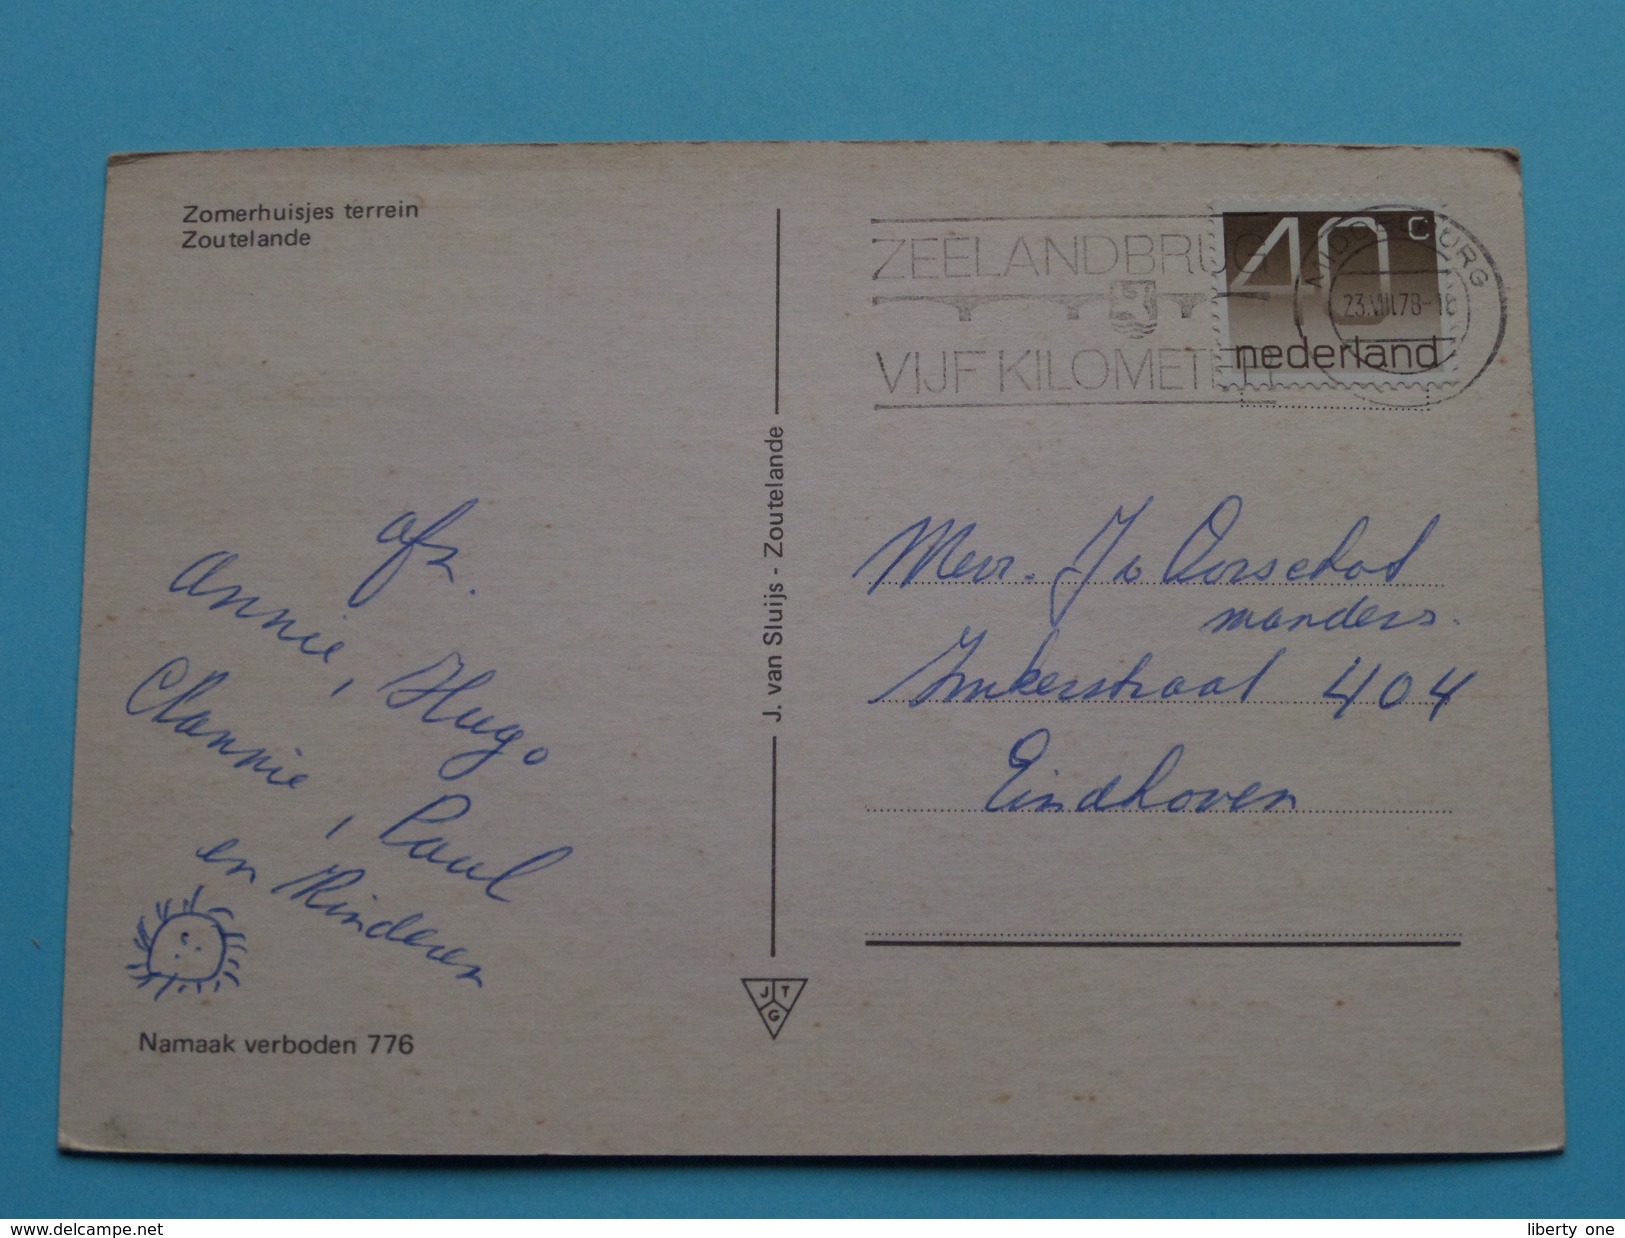 Zomerhuisjes terrein
Zoutelande
ZEELANDBRUG
VIJF KILOMETER
40c
nederland
MIDDELBURG
23.VIII.78-18
afz.
Annie, Hugo
Clannie, Paul
en Kinderen
Namaak verboden 776
J. van Sluijs - Zoutelande
J T G
Mevr. Jo Oorschot
manders.
Imkerstraat 404
Eindhoven
www.delcampe.net
liberty_one